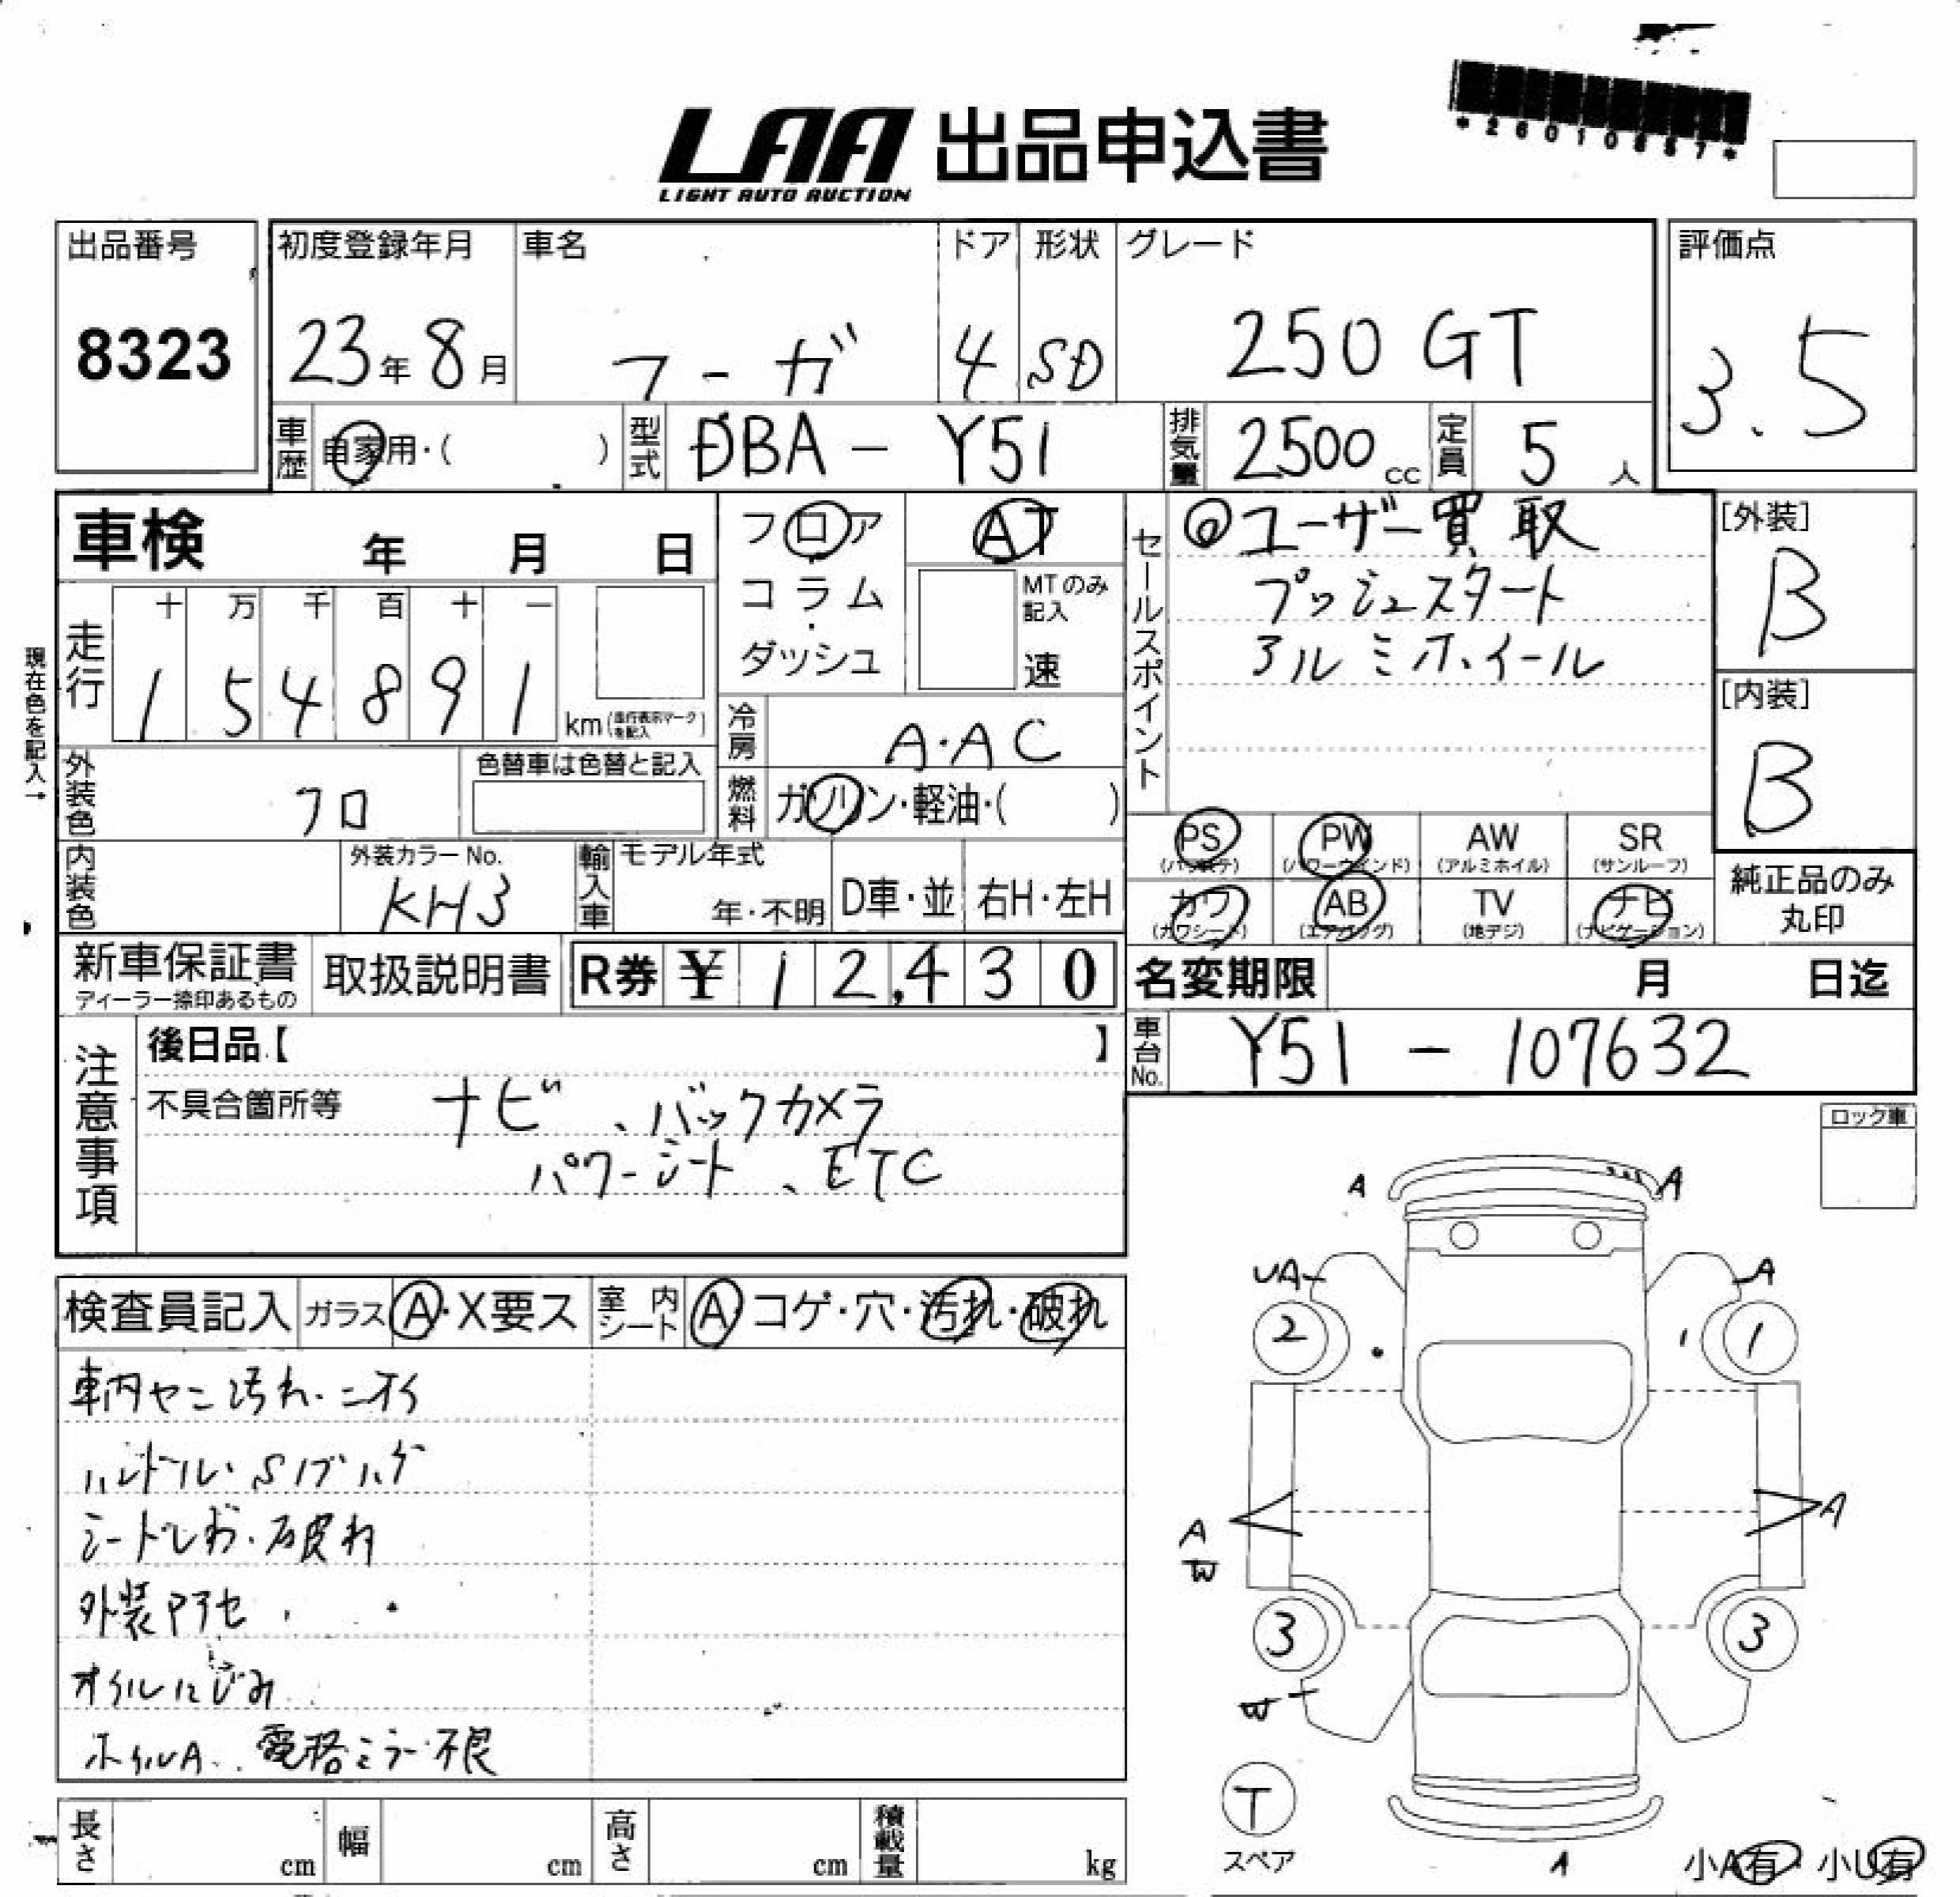 *26010887*
LAA 出品申込書
LIGHT AUTO AUCTION
出品番号
8323
初度登録年月
23年8月
車名
フーガ
ドア
4
形状
SD
グレード
250 GT
評価点
3.5
車歴
自家用・( )
型式
DBA - Y51
排気量
2500 cc
定員
5 人
車検 年 月 日
フロア
コラム
ダッシュ
AT
MTのみ記入
速
セールスポイント
◎ユーザー買取
プッシュスタート
アルミホイール
[外装]
B
[内装]
B
現在色を記入→
走行
十 万 千 百 十 一
1 5 4 8 9 1
km(走行表示マークを記入)
冷房
A・AC
外装色
クロ
色替車は色替と記入
燃料
ガソリン・軽油・( )
内装色
外装カラーNo.
KH3
輸入車
モデル年式
年・不明
D車・並
右H・左H
PS
(パワステ)
PW
(パワーウインド)
AW
(アルミホイル)
SR
(サンルーフ)
カワ
(カワシート)
AB
(エアバッグ)
TV
(地デジ)
ナビ
(ナビゲーション)
純正品のみ
丸印
新車保証書
ディーラー捺印あるもの
取扱説明書
R券 ¥ 1 2,4 3 0
名変期限 月 日迄
車台No.
Y51 - 107632
注意事項
後日品【 】
不具合箇所等
ナビ、バックカメラ
パワーシート、ETC
ロック車
検査員記入
ガラス A・X要ス
室内シート A・コゲ・穴・汚れ・破れ
車内ヤニ汚れ・ニオイ
ハンドル・Sノブハゲ
シートしわ・破れ
外装アセ
オイルにじみ
ホイルA. 電格ミラー不良
A A
UA A
2 1
A A
W
3 3
W
T
スペア
A
小A有・小U有
長さ cm
幅 cm
高さ cm
積載量 kg